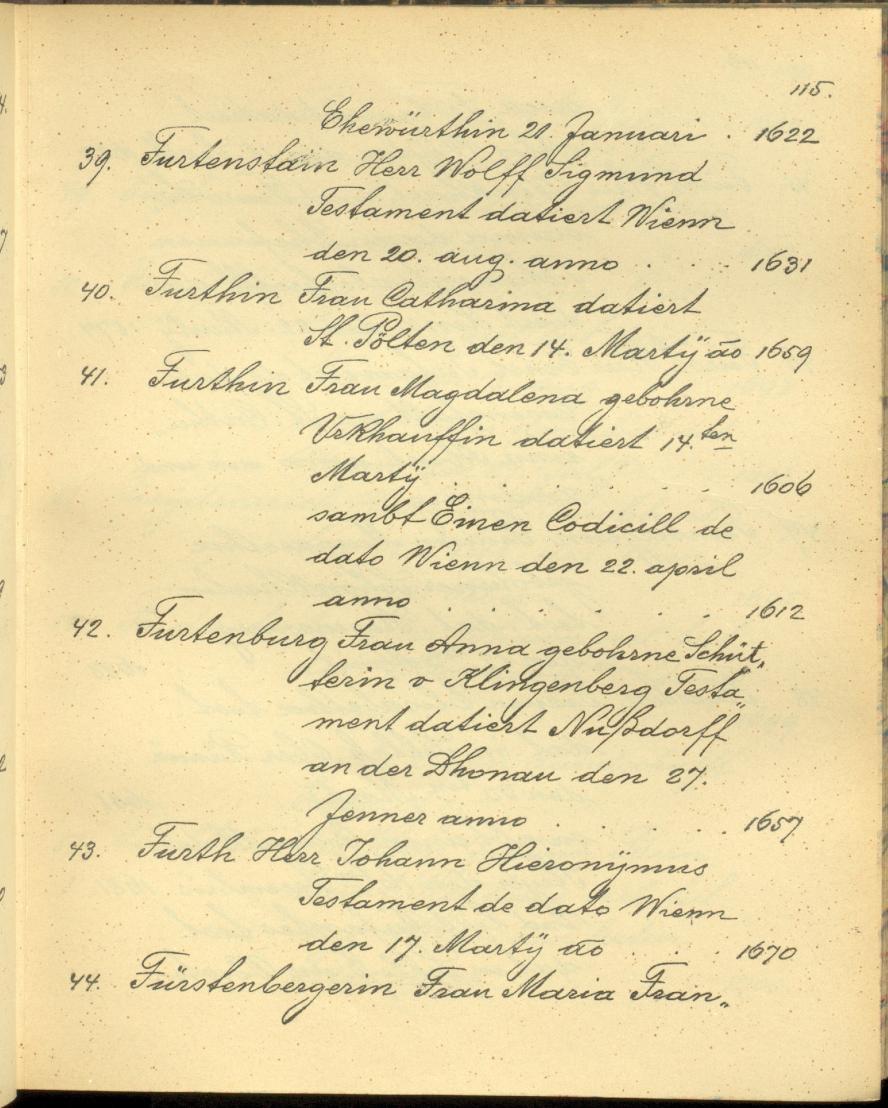 115.
Ehewürthin 21. Januari . 1622
39. Furtenstain Herr Wolff Sigmund
Testament datiert Wienn
den 20. aug. anno . . . . 1631
40. Furthin Frau Catharina datiert
St. Pölten den 14. Martÿ āo 1659
41. Furthin Frau Magdalena gebohrne
Vrkhauffin datiert 14.ten
Martÿ . . . . . . 1606
sambt Einen Codicill de
dato Wienn den 22. april
anno . . . . . . 1612
42. Furtenburg Frau Anna gebohrne Schüt„
terin v Klingenberg Testa„
ment datiert Nußdorff
an der Dhonau den 27.
Jenner anno . . . . . 1657
43. Furth Herr Johann Hieronÿmus
Testament de dato Wienn
den 17. Martÿ āo . . . 1670
44. Fürstenbergerin Frau Maria Fran„